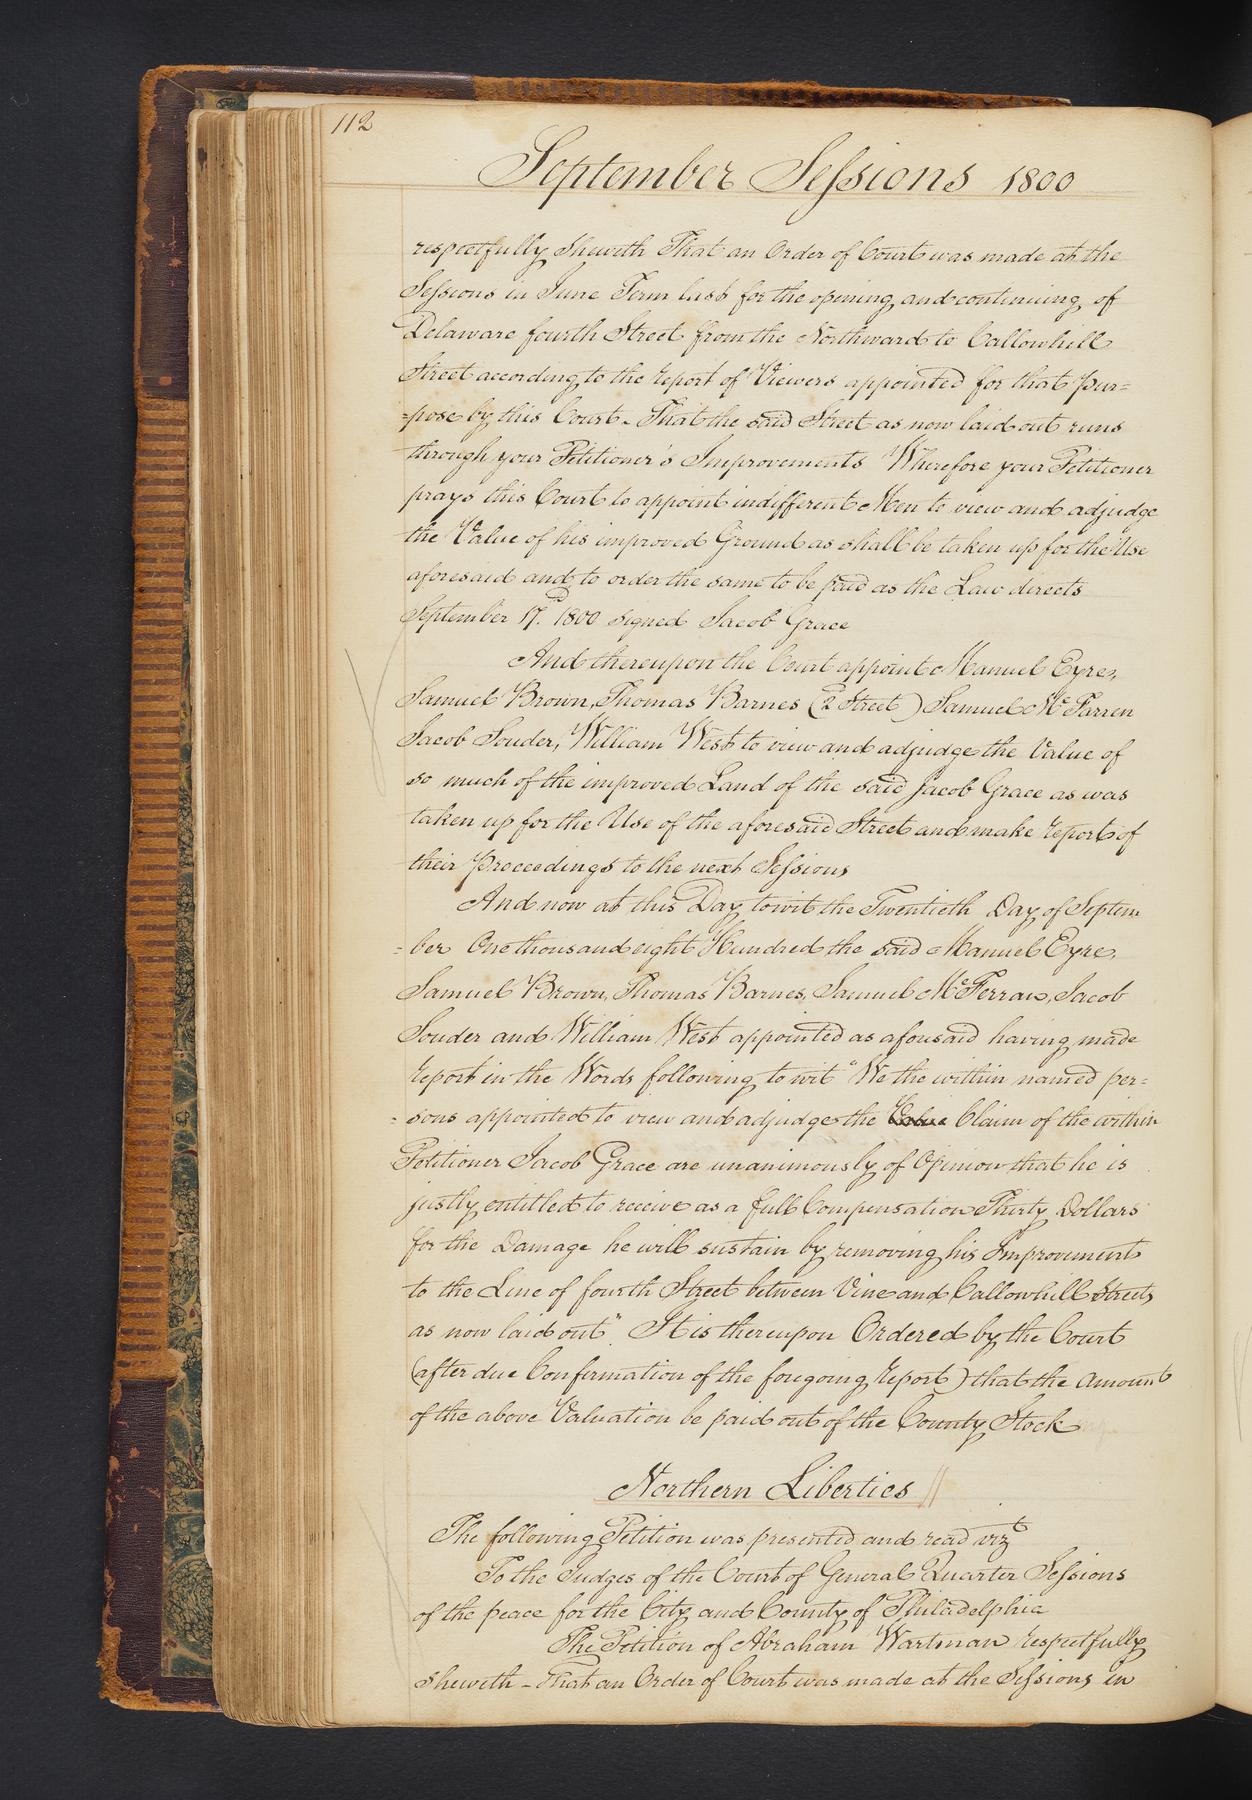 112
September Sessions 1800
respectfully Sheweth That an Order of Court was made at the
Sessions in June Term last for the opening and continuing of
Delaware fourth Street from the Northward to Callowhill
Street according to the report of Viewers appointed for that Pur=
=pose by this Court - That the said Street as now laid out runs
through your Petitioner's Improvements Wherefore your Petitioner
prays this Court to appoint indifferent Men to view and adjudge
the Value of his improved Ground as shall be taken up for the Use
aforesaid and to order the same to be paid as the Law directs
September 17. 1800 signed Jacob Grace
And thereupon the Court appoint Manuel Eyre,
Samuel Brown, Thomas Barnes (2d Street) Samuel McFarren
Jacob Souder, William West to view and adjudge the Value of
so much of the improved Land of the said Jacob Grace as was
taken up for the Use of the aforesaid Street and make report of
their Proceedings to the next Sessions
And now at this Day to wit the Twentieth Day of Septem
=ber One thousand eight Hundred the said Manuel Eyre,
Samuel Brown, Thomas Barnes, Samuel McFerran, Jacob
Souder and William West appointed as aforesaid having made
report in the Words following to wit "We the within named per=
=sons appointed to view and adjudge the Claim of the within
Petitioner Jacob Grace are unanimously of Opinion that he is
justly entitled to receive as a full Compensation Thirty Dollars
for the Damage he will sustain by removing his Improvement
to the Line of fourth Street between Vine and Callowhill Streets
as now laid out" It is thereupon Ordered by the Court
(after due Confirmation of the foregoing report) that the amount
of the above Valuation be paid out of the County Stock
Northern Liberties //
The following Petition was presented and read vizt
To the Judges of the Court of General Quarter Sessions
of the peace for the City and County of Philadelphia
The Petition of Abraham Wartman respectfully
Sheweth - That an Order of Court was made at the Sessions in